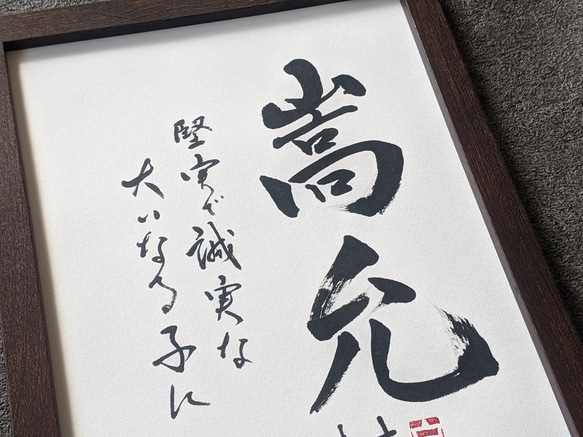 嵩允
堅実で誠実な
大いなる子に